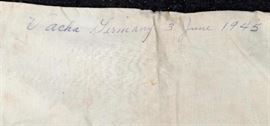 Vacha Germany 3 June 1945